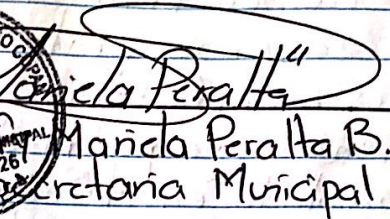 Mariela Peralta
Mariela Peralta B.
Secretaria Municipal